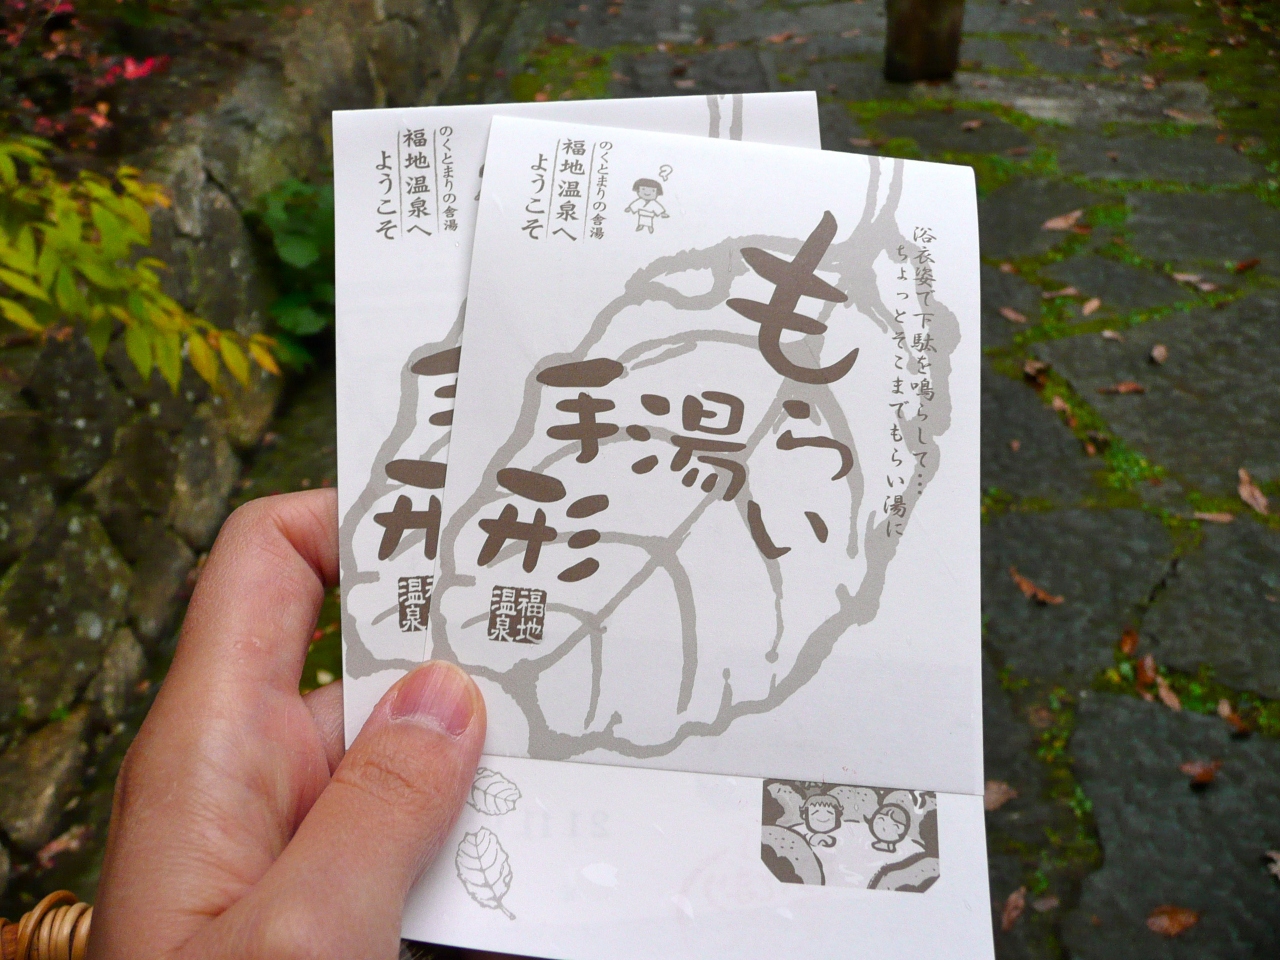 のくとまりの舎湯
福地温泉へ
ようこそ
のくとまりの舎湯
福地温泉へ
ようこそ
浴衣姿で下駄を鳴らして…
ちょっとそこまでもらい湯に
もらい
湯
手形
福地
温泉
手形
温泉